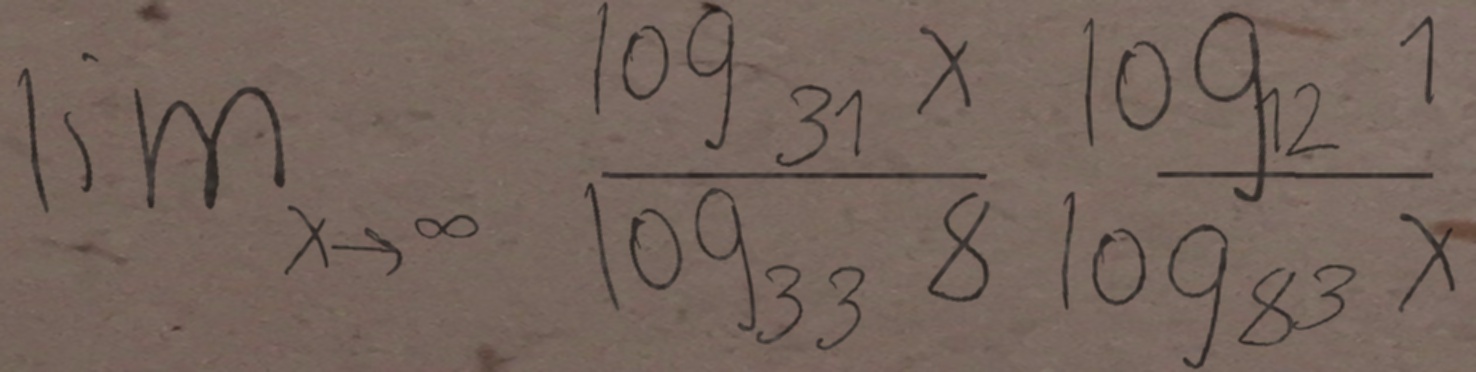 \lim_{x \to \infty} \frac{\log_{31} x}{\log_{33} 8} \frac{\log_{12} 1}{\log_{83} x}